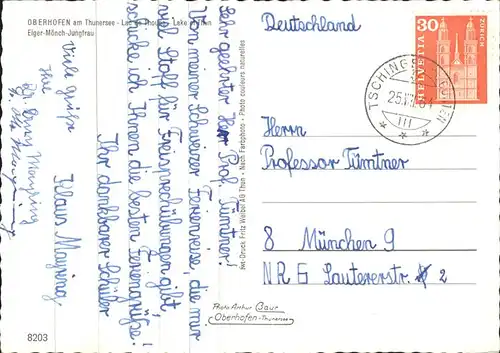 OBERHOFEN am Thunersee - Lac de Thoune - Lake of Thun
Eiger-Mönch-Jungfrau
Sehr geehrter Herr Prof. Türntner!
Von meiner Schweizer Ferienreise, die mir
viel Stoff für Freisprechübungen gibt,
schicke ich Ihnen die besten Feriengrüße.
Ihr dankbarer Schüler
Klaus Mayring
Viele Grüße
Ihre
Mayring
Photo couleurs naturelles
Nach Farbphoto
Druck Fritz Weibel AG Thun
Photo Arthur Baur
Oberhofen-Thunersee
8203
Deutschland
HELVETIA 30
ZÜRICH
TSCHINGEL
25.VII.64
III
Herrn
Professor Türntner
8 München 9
NR 6 Lautererstr. 2